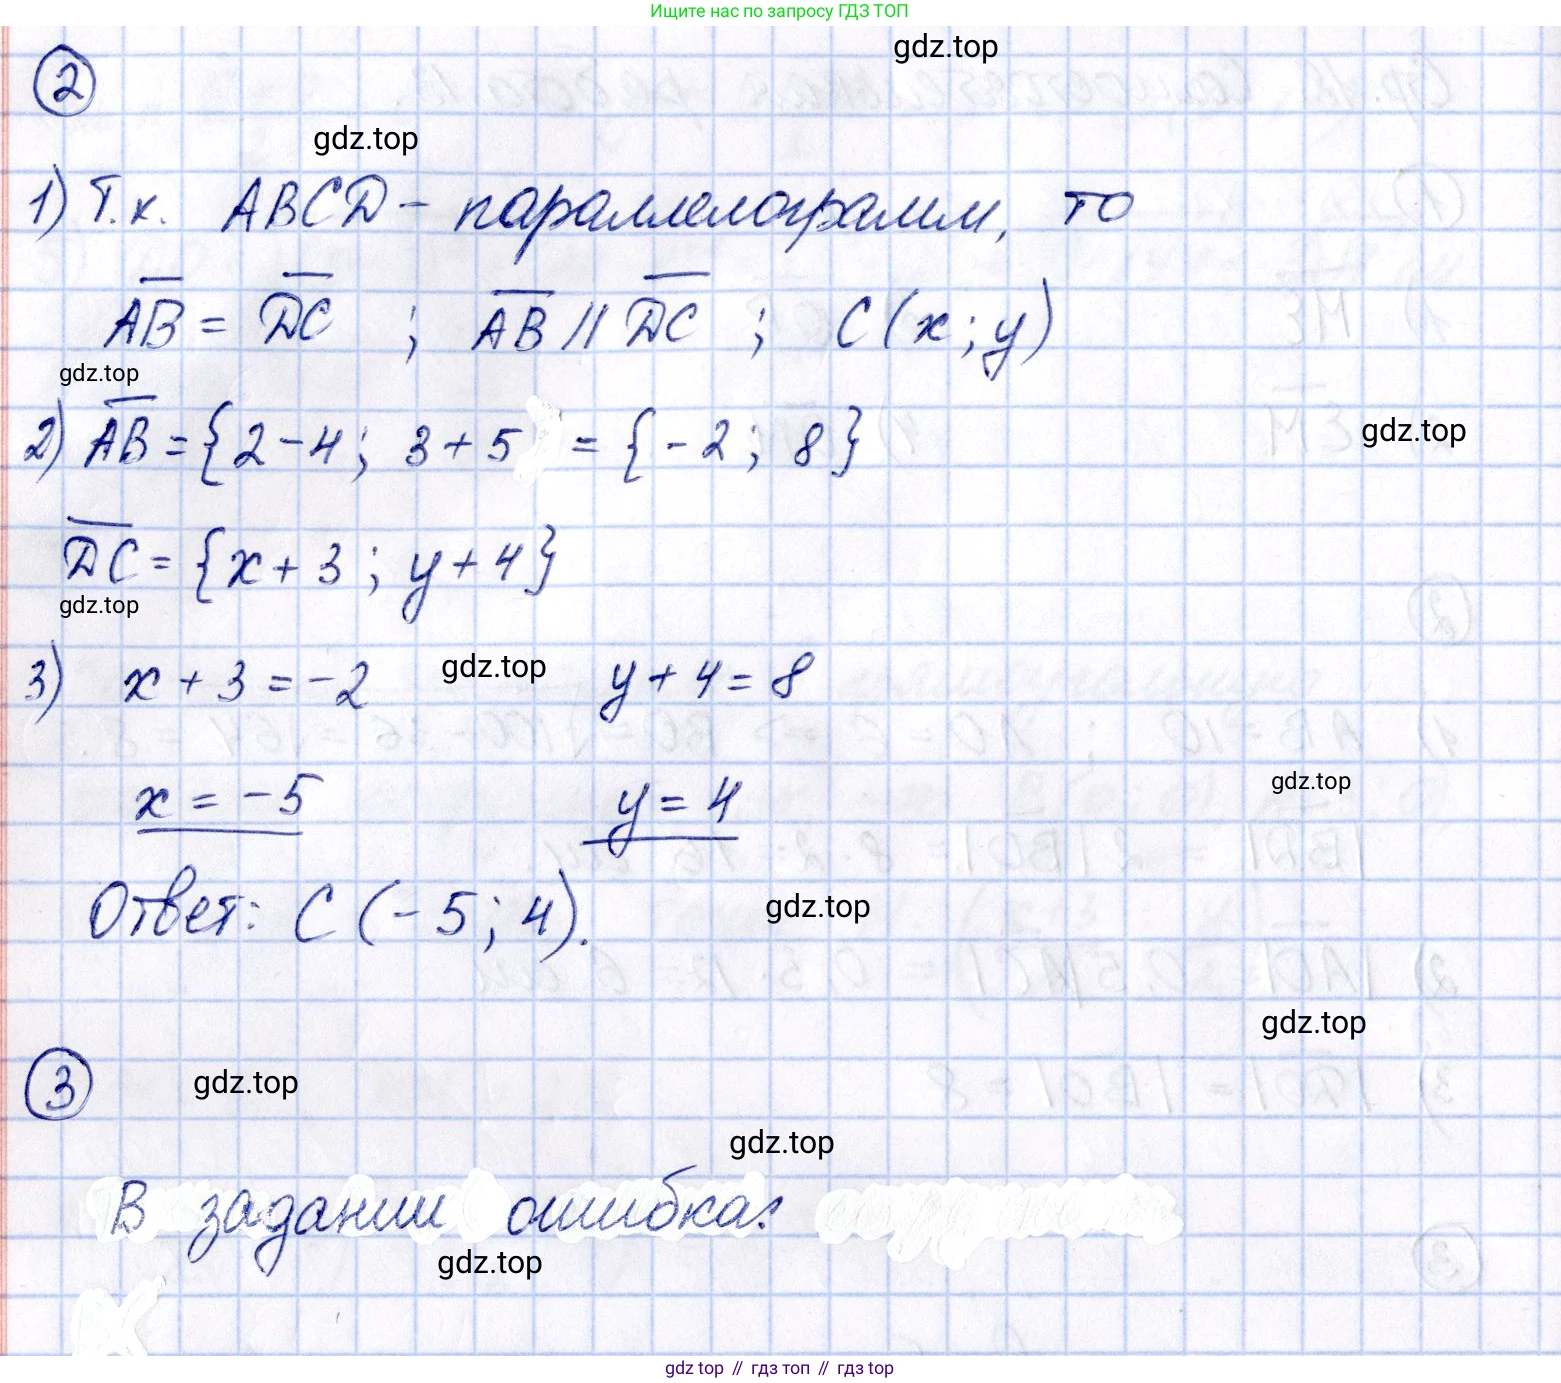 Ищите нас по запросу ГДЗ ТОП
gdz.top
2
gdz.top
1) Т.к. ABCD - параллелограмм, то
A̅B̅ = D̅C̅ ; A̅B̅ // D̅C̅ ; C(x; y)
gdz.top
2) A̅B̅ = {2-4; 3+5 = {-2; 8}
gdz.top
D̅C̅ = {x+3; y+4}
gdz.top
3) x+3=-2 y+4=8
gdz.top
x = -5 y = 4
gdz.top
Ответ: C(-5; 4).
gdz.top
gdz.top
3
gdz.top
gdz.top
В задании ошибка:
gdz.top
gdz top // гдз топ // гдз top